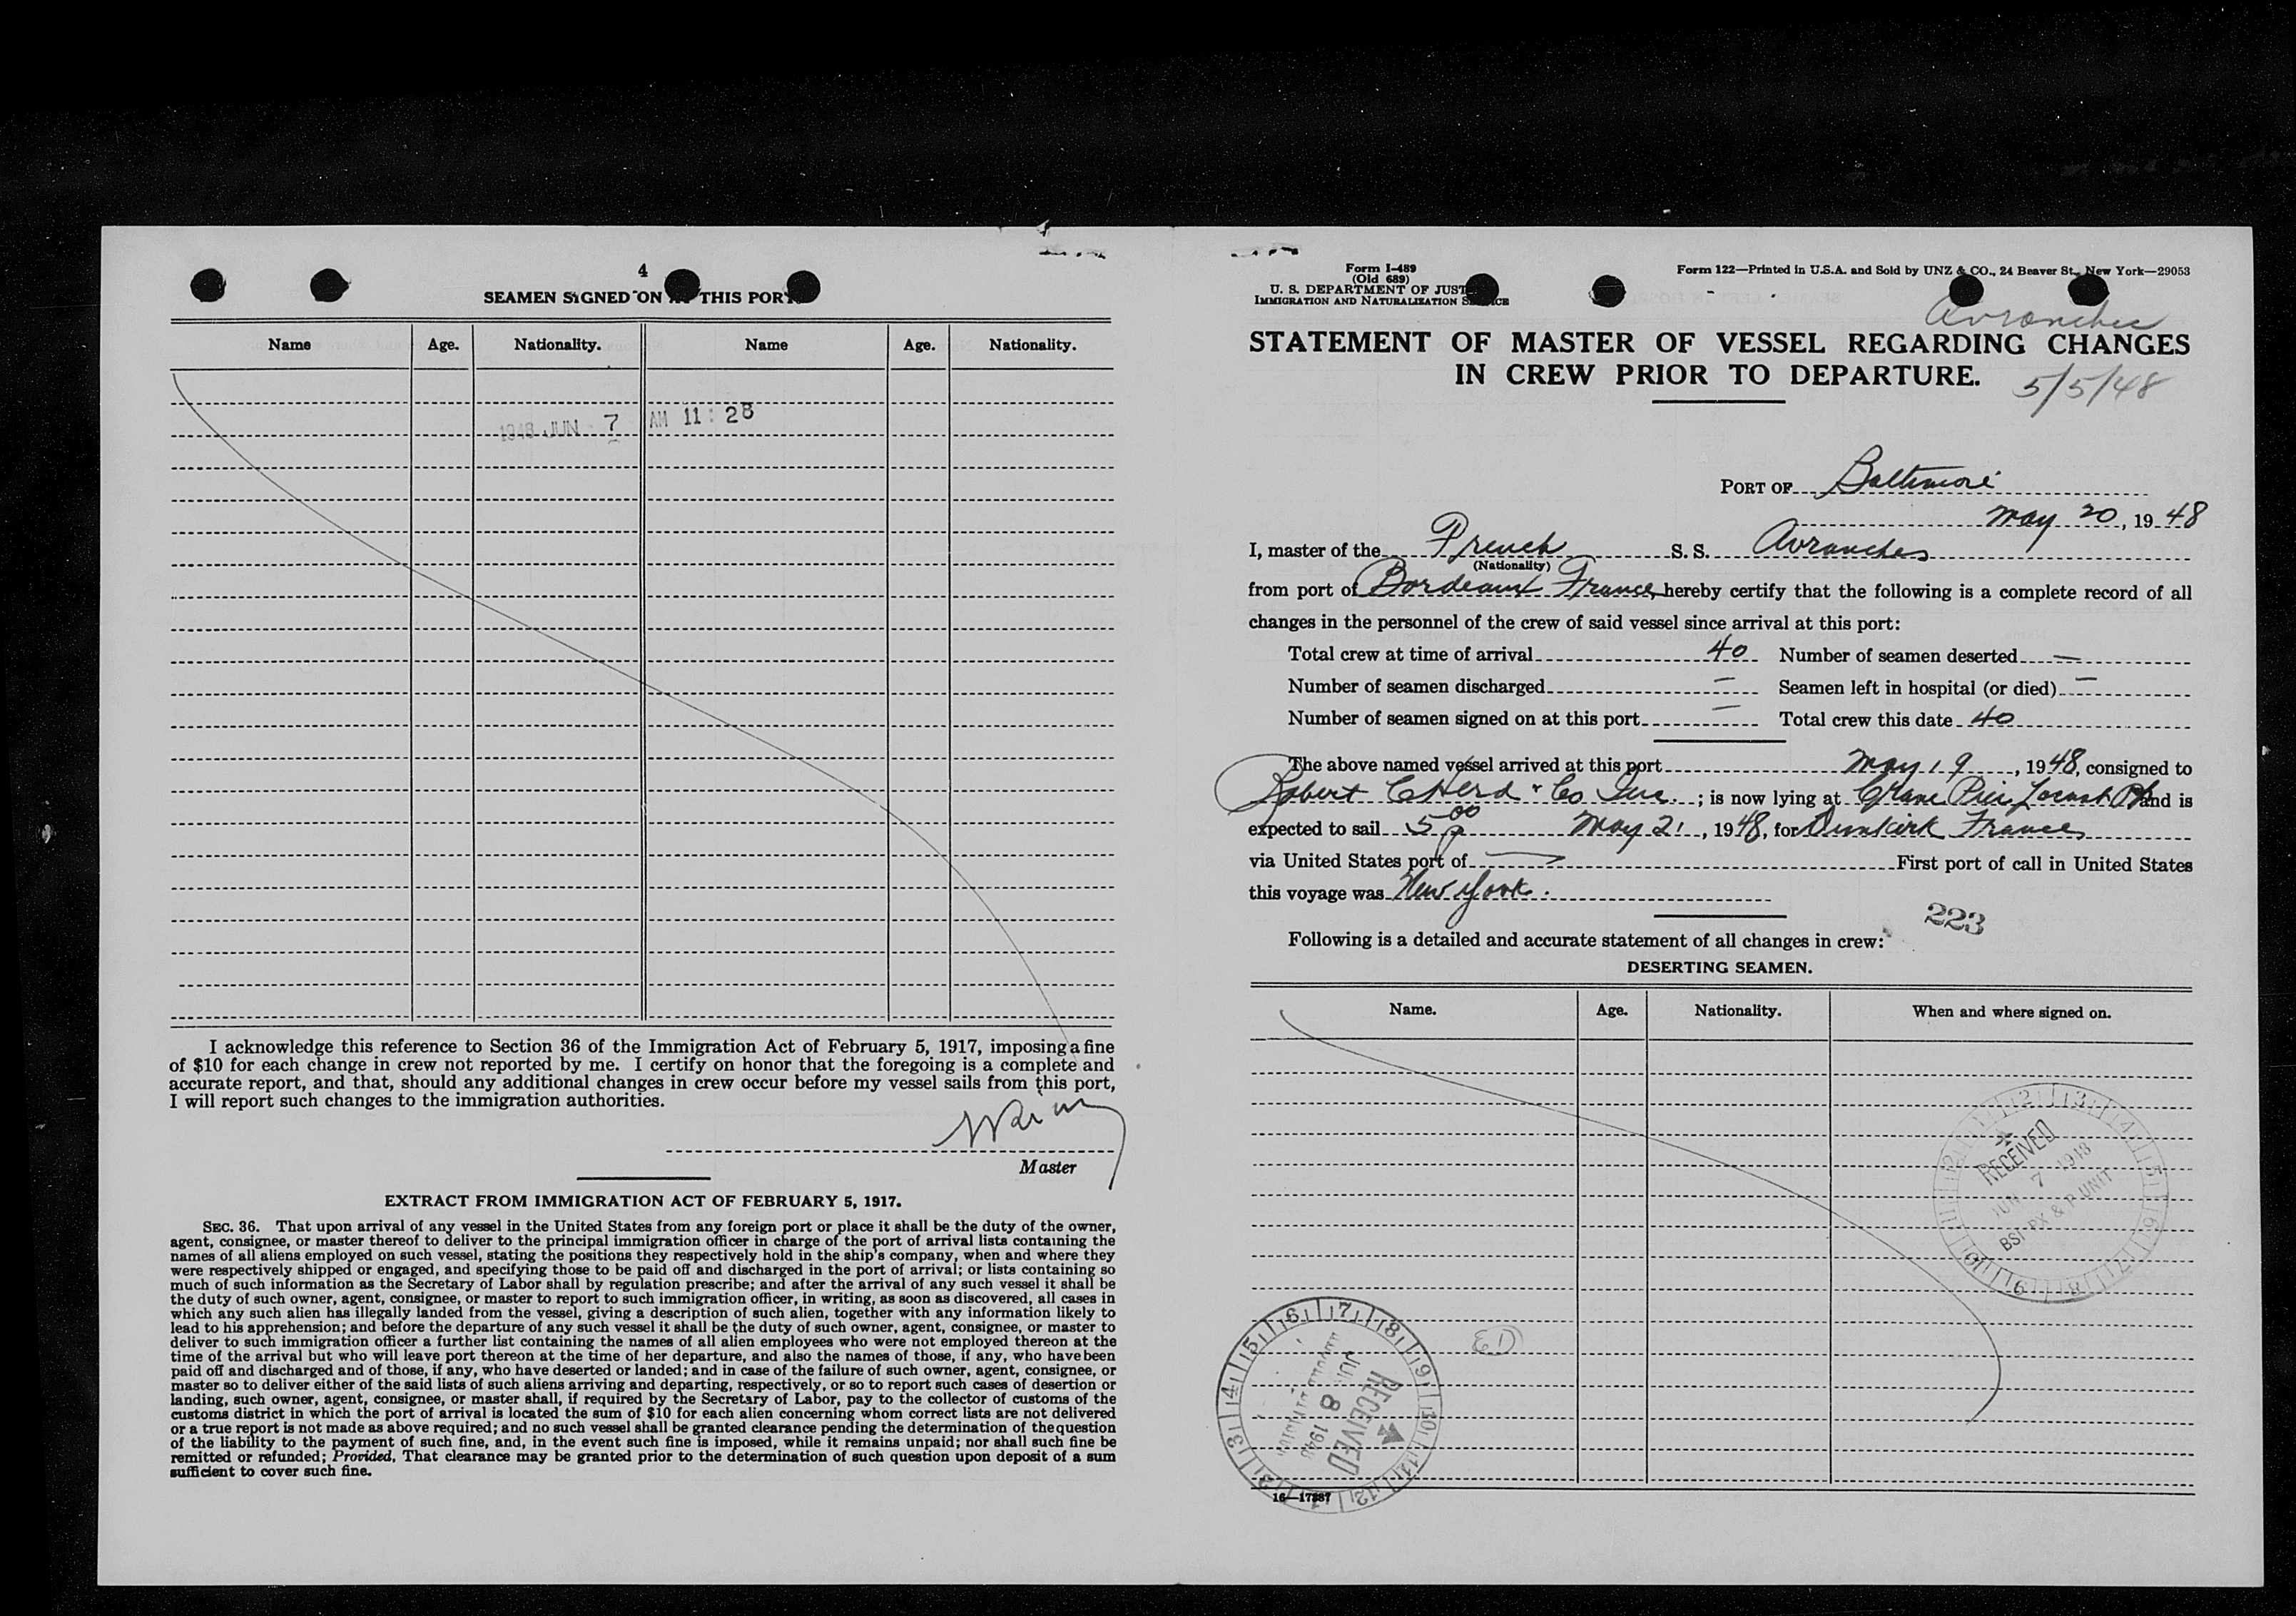 4
SEAMEN SIGNED ON AT THIS PORT
Name Age. Nationality. Name Age. Nationality.
1948 JUN 7 AM 11:28
I acknowledge this reference to Section 36 of the Immigration Act of February 5, 1917, imposing a fine
of $10 for each change in crew not reported by me. I certify on honor that the foregoing is a complete and
accurate report, and that, should any additional changes in crew occur before my vessel sails from this port,
I will report such changes to the immigration authorities.
Master
EXTRACT FROM IMMIGRATION ACT OF FEBRUARY 5, 1917.
SEC. 36. That upon arrival of any vessel in the United States from any foreign port or place it shall be the duty of the owner,
agent, consignee, or master thereof to deliver to the principal immigration officer in charge of the port of arrival lists containing the
names of all aliens employed on such vessel, stating the positions they respectively hold in the ship's company, when and where they
were respectively shipped or engaged, and specifying those to be paid off and discharged in the port of arrival; or lists containing so
much of such information as the Secretary of Labor shall by regulation prescribe; and after the arrival of any such vessel it shall be
the duty of such owner, agent, consignee, or master to report to such immigration officer, in writing, as soon as discovered, all cases in
which any such alien has illegally landed from the vessel, giving a description of such alien, together with any information likely to
lead to his apprehension; and before the departure of any such vessel it shall be the duty of such owner, agent, consignee, or master to
deliver to such immigration officer a further list containing the names of all alien employees who were not employed thereon at the
time of the arrival but who will leave port thereon at the time of her departure, and also the names of those, if any, who have been
paid off and discharged and of those, if any, who have deserted or landed; and in case of the failure of such owner, agent, consignee, or
master so to deliver either of the said lists of such aliens arriving and departing, respectively, or so to report such cases of desertion or
landing, such owner, agent, consignee, or master shall, if required by the Secretary of Labor, pay to the collector of customs of the
customs district in which the port of arrival is located the sum of $10 for each alien concerning whom correct lists are not delivered
or a true report is not made as above required; and no such vessel shall be granted clearance pending the determination of the question
of the liability to the payment of such fine, and, in the event such fine is imposed, while it remains unpaid; nor shall such fine be
remitted or refunded; Provided, That clearance may be granted prior to the determination of such question upon deposit of a sum
sufficient to cover such fine.
Form I-489
(Old 689)
U. S. DEPARTMENT OF JUSTICE
IMMIGRATION AND NATURALIZATION SERVICE
Form 122—Printed in U.S.A. and Sold by UNZ & CO., 24 Beaver St., New York—29053
Avranches
STATEMENT OF MASTER OF VESSEL REGARDING CHANGES
IN CREW PRIOR TO DEPARTURE.
5/5/48
PORT OF Baltimore
May 20, 1948
I, master of the French S. S. Avranches
(Nationality)
from port of Bordeaux France, hereby certify that the following is a complete record of all
changes in the personnel of the crew of said vessel since arrival at this port:
Total crew at time of arrival 40 Number of seamen deserted —
Number of seamen discharged — Seamen left in hospital (or died) —
Number of seamen signed on at this port — Total crew this date 40
The above named vessel arrived at this port May 19, 1948, consigned to
Robert C Herd & Co Inc. ; is now lying at Crane Pier, Locust Pt and is
expected to sail 5 00 p May 21, 1948, for Dunkirk France
via United States port of — First port of call in United States
this voyage was New York.
223
Following is a detailed and accurate statement of all changes in crew:
DESERTING SEAMEN.
Name. Age. Nationality. When and where signed on.
RECEIVED
JUN 7 1948
RECEIVED
JUN 8 1948
16—17287